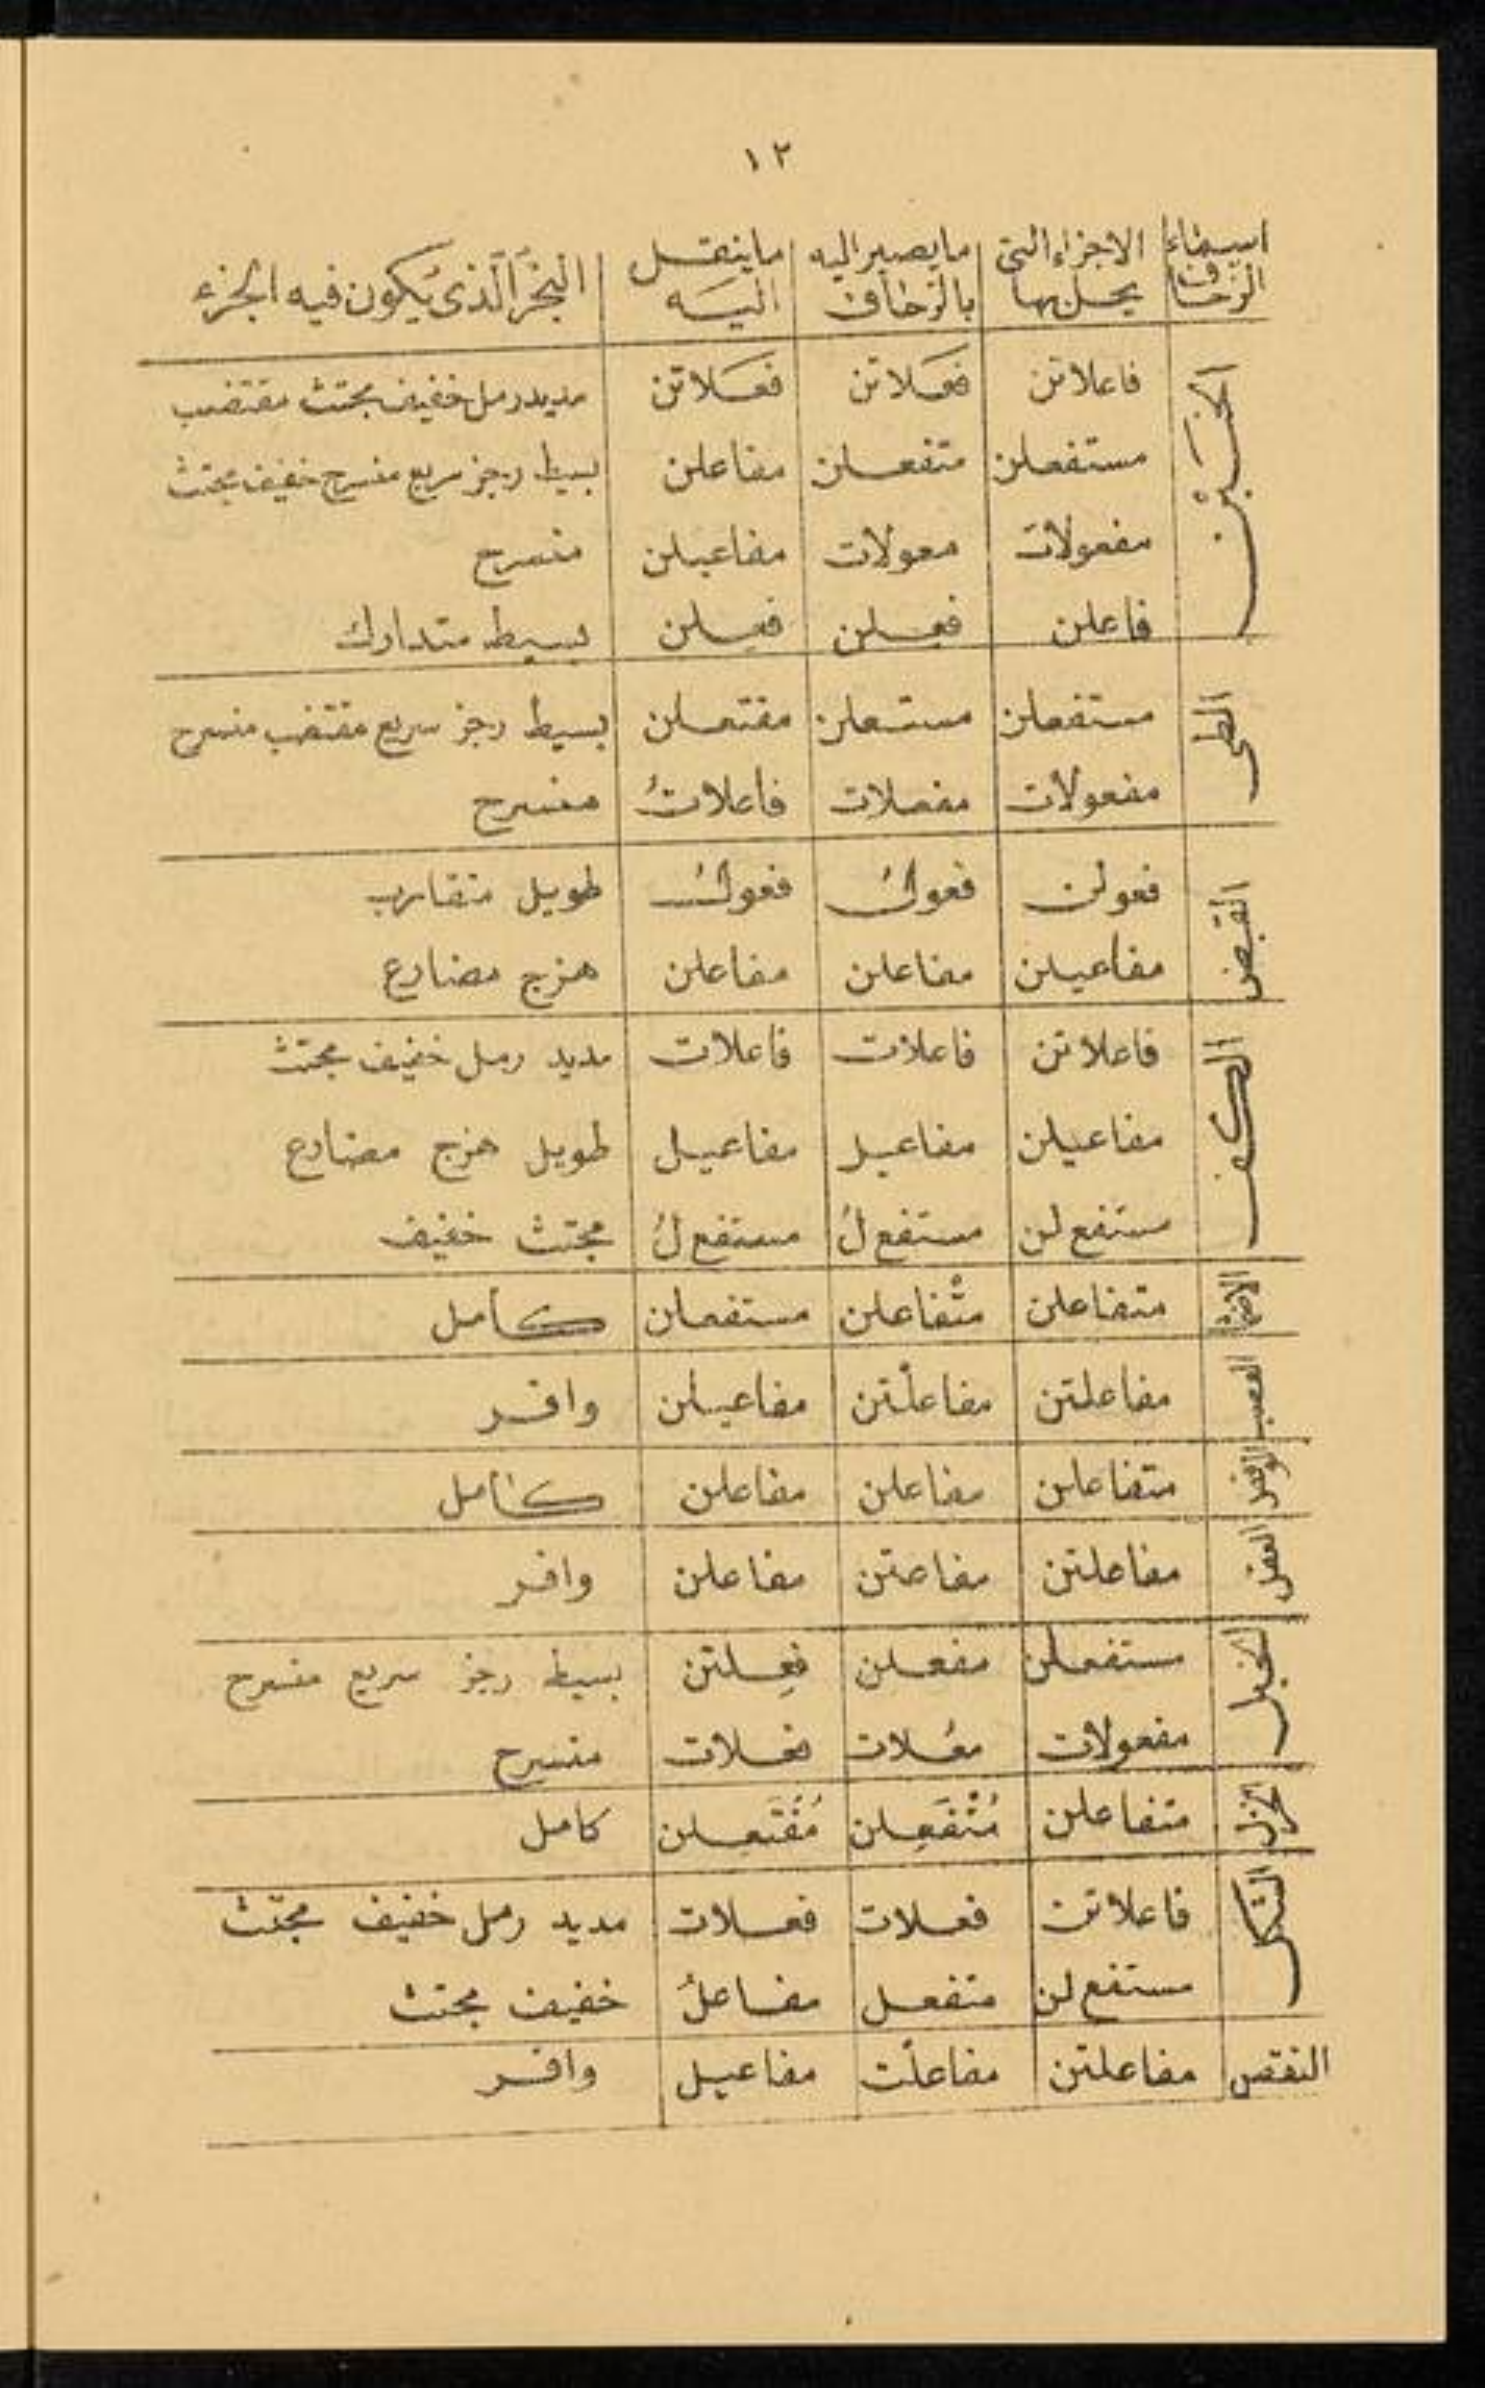 ١٢
اسماء الزحاف | الاجزاء التى يحل بها | ما يصير اليه بالزحاف | ما ينقل اليه | البحر الذى يكون فيه الجزء
الخبن | فاعلاتن | فعلاتن | فعلاتن | مديد رمل خفيف مجتث مقتضب
مستفعلن | متفعلن | مفاعلن | بسيط رجز سريع منسرح خفيف مجتث
مفعولات | معولات | مفاعيلن | منسرح
فاعلن | فعلن | فعلن | بسيط متدارك
الطى | مستفعلن | مستعلن | مفتعلن | بسيط رجز سريع مقتضب منسرح
مفعولات | مفعلات | فاعلاتُ | منسرح
القبض | فعولن | فعولُ | فعولُ | طويل متقارب
مفاعيلن | مفاعلن | مفاعلن | هزج مضارع
الكف | فاعلاتن | فاعلات | فاعلات | مديد رمل خفيف مجتث
مفاعيلن | مفاعيل | مفاعيل | طويل هزج مضارع
مستفع لن | مستفع لُ | مستفع لُ | مجتث خفيف
متفاعلن | متْفاعلن | مستفعلن | كامل
العصب | مفاعلتن | مفاعلْتن | مفاعيلن | وافر
الوقص | متفاعلن | مفاعلن | مفاعلن | كامل
العقل | مفاعلتن | مفاعتن | مفاعلن | وافر
الخبل | مستفعلن | مفعلن | فعلتن | بسيط رجز سريع منسرح
مفعولات | معُلات | فعلات | منسرح
الخزل | متفاعلن | مُتْفَعِلن | مُفْتَعِلن | كامل
الشكل | فاعلاتن | فعلات | فعلات | مديد رمل خفيف مجتث
مستفع لن | متفعل | مفاعلُ | خفيف مجتث
النقص | مفاعلتن | مفاعلْت | مفاعيل | وافر